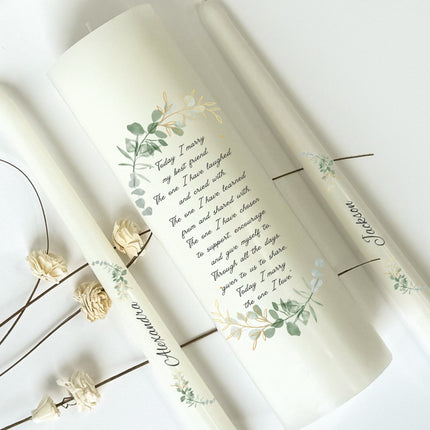 Today I marry
my best friend
The one I have laughed
and cried with
The one I have learned
from and shared with
The one I have chosen
to support, encourage
and give myself to
Through all the days
given to us to share
Today I marry
the one I love.
Alexandra
Jackson